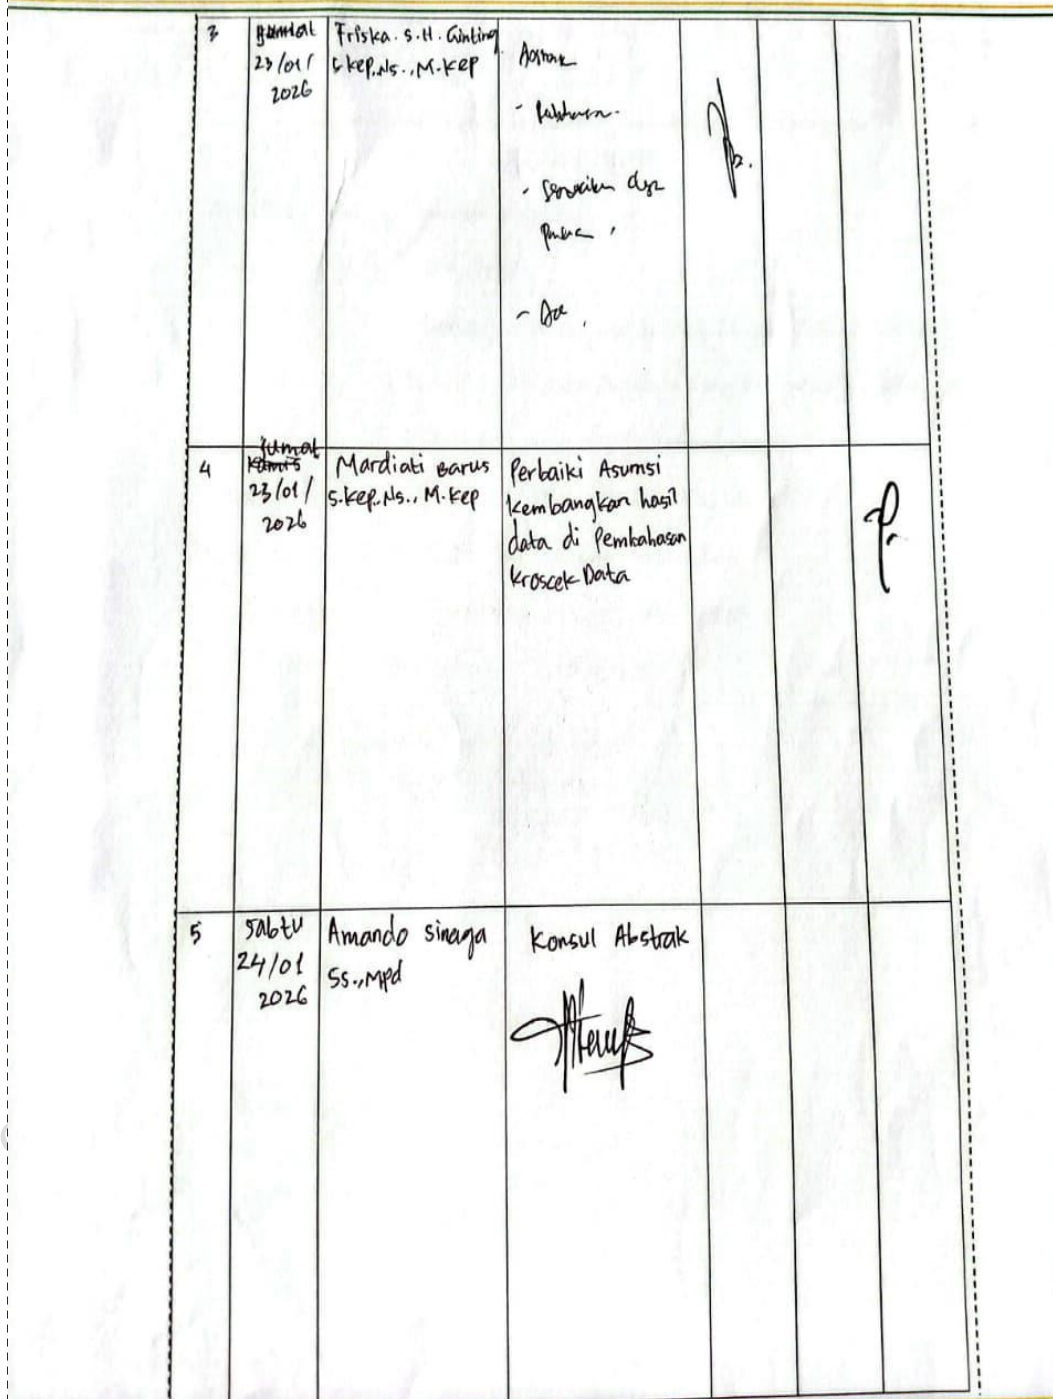 3
Jumat
23/01/
2026
Friska. S.H. Ginting
S.Kep.Ns., M.Kep
- Acc.
4
Jumat
23/01/
2026
Mardiati Barus
S.Kep.Ns., M.Kep
Perbaiki Asumsi
Kembangkan hasil
data di Pembahasan
Kroscek Data
5
Sabtu
24/01
2026
Amando Sinaga
Ss., Mpd
Konsul Abstrak